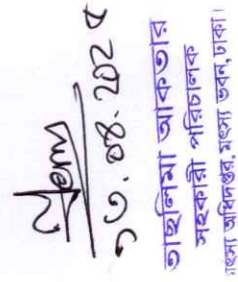 ১৩.০৪.২০২৫
তাছলিমা আকতার
সহকারী পরিচালক
মৎস্য অধিদপ্তর, মৎস্য ভবন, ঢাকা।